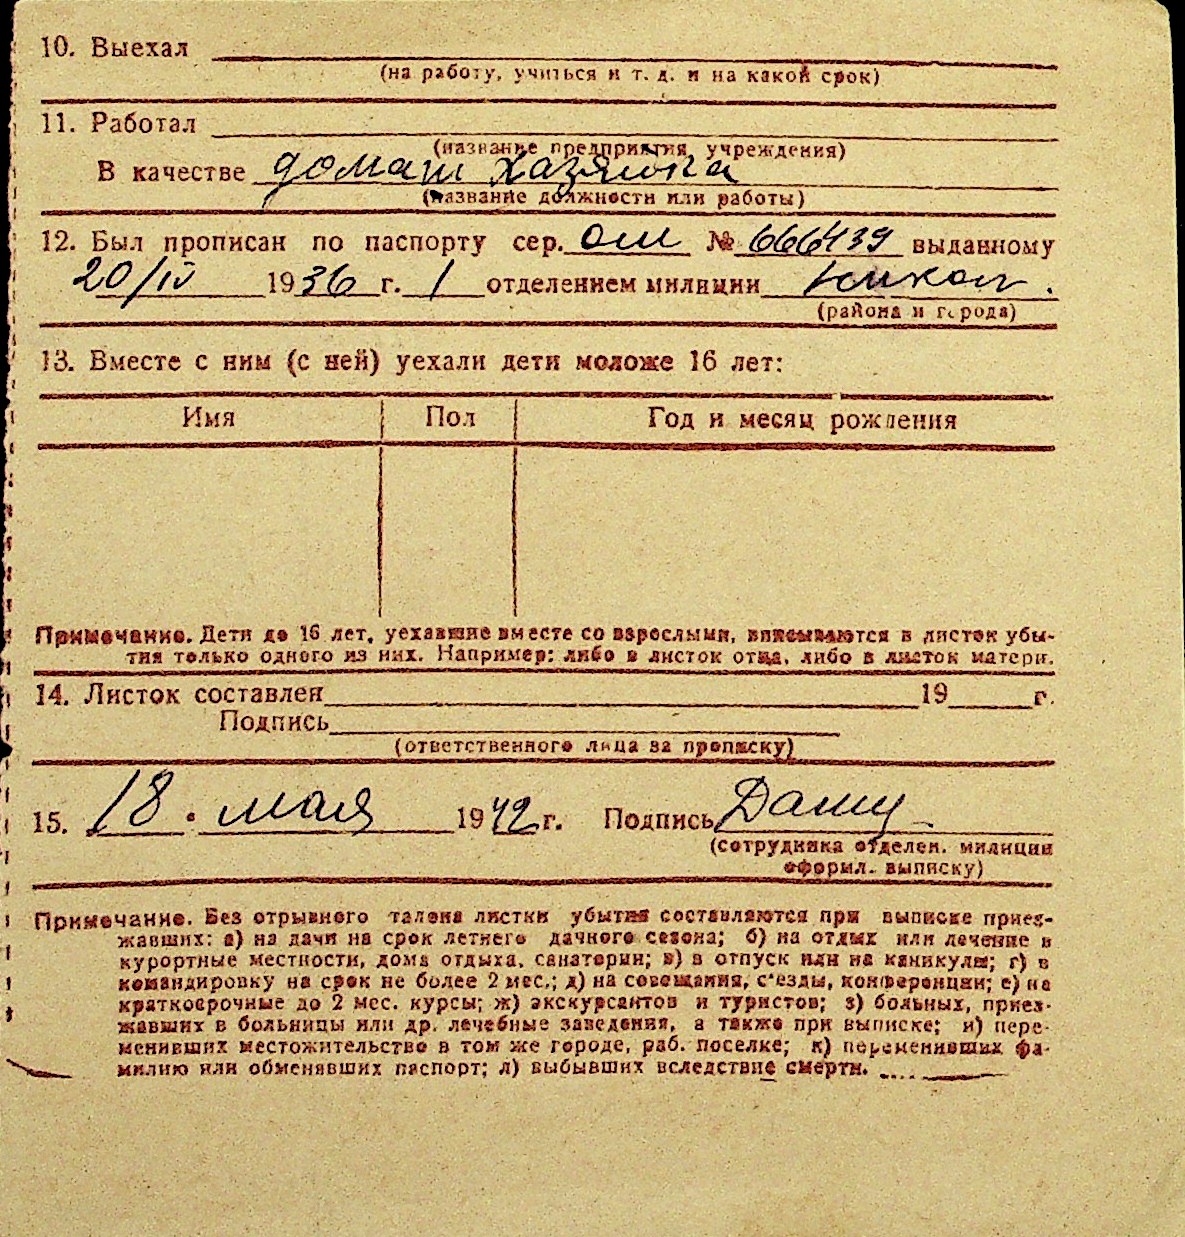 10. Выехал
(на работу, учиться и т. д. и на какой срок)
11. Работал
(название предприятия, учреждения)
В качестве домаш хазяика
(название должности или работы)
12. Был прописан по паспорту сер. № 666439 выданному
20/IV 1936 г. 1 отделением милиции
(района и города)
13. Вместе с ним (с ней) уехали дети моложе 16 лет:
Имя Пол Год и месяц рождения
Примечание. Дети до 16 лет, уехавшие вместе со взрослыми, вписываются в листок убы-
тия только одного из них. Например: либо в листок отца, либо в листок матери.
14. Листок составлен 19 г.
Подпись
(ответственного лица за прописку)
15. 18 • мая 1942 г. Подпись
(сотрудника отделен. милиции
оформл. выписку)
Примечание. Без отрывного талона листки убытия составляются при выписке приез-
жавших: а) на дачи на срок летнего дачного сезона; б) на отдых или лечение в
курортные местности, дома отдыха, санатории; в) в отпуск или на каникулы; г) в
командировку на срок не более 2 мес.; д) на совещания, с'езды, конференции; е) на
краткосрочные до 2 мес. курсы; ж) экскурсантов и туристов; з) больных, приез-
жавших в больницы или др. лечебные заведения, а также при выписке; и) пере-
менивших местожительство в том же городе, раб. поселке; к) переменивших фа-
милию или обменявших паспорт; л) выбывших вследствие смерти.